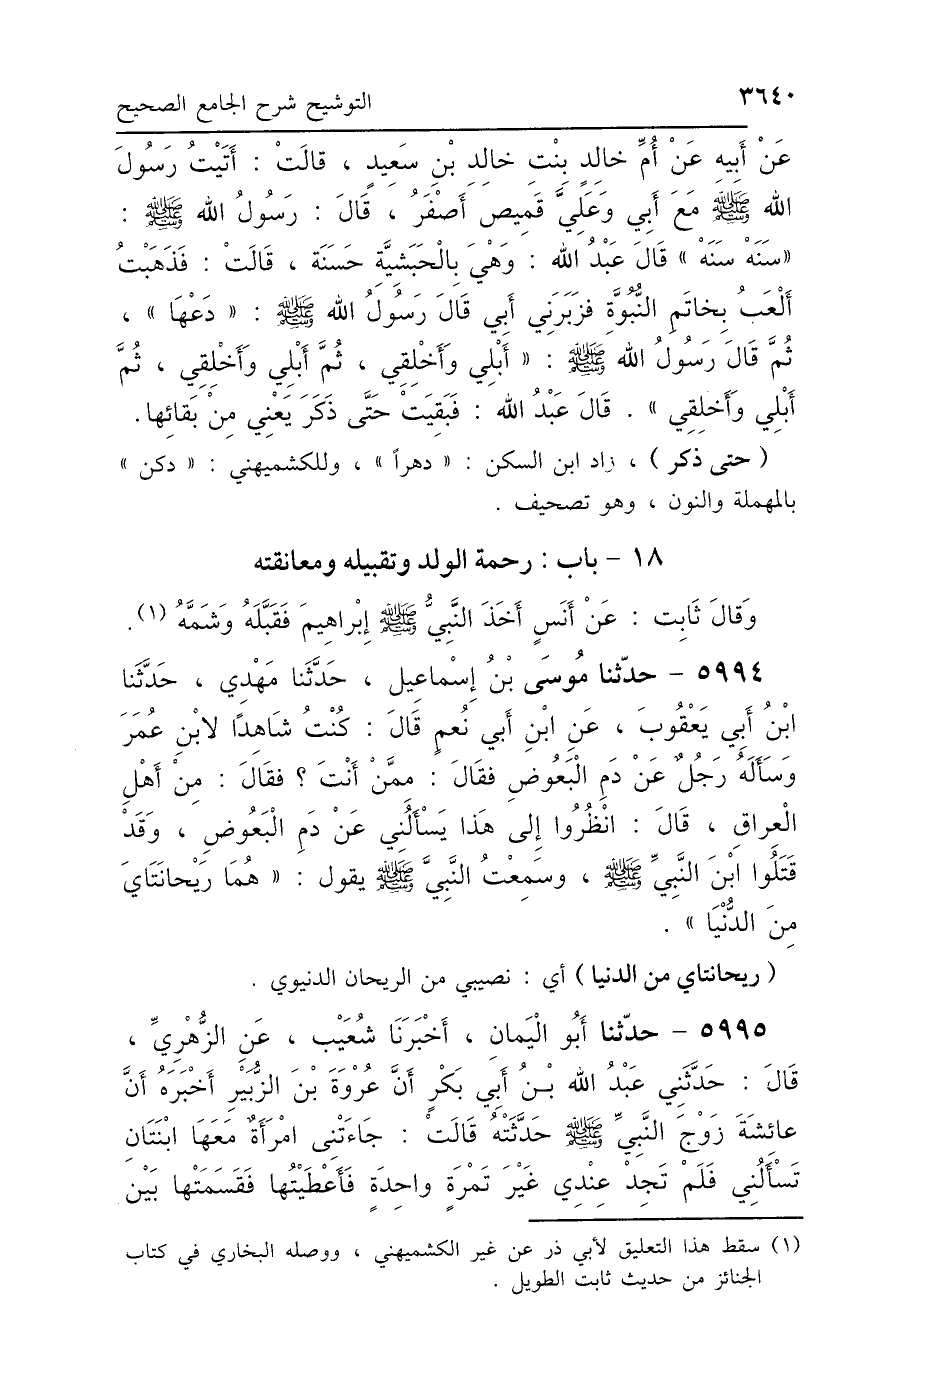 ٣٦٤٠
التوشيح شرح الجامع الصحيح
عَنْ أَبِيهِ عَنْ أُمِّ خالِدٍ بِنْتِ خالِدِ بْنِ سَعِيدٍ ، قالَتْ : أَتَيْتُ رَسُولَ
الله ﷺ مَعَ أَبِي وَعَلَيَّ قَمِيصٌ أَصْفَرُ ، قَالَ : رَسُولُ الله ﷺ :
«سَنَهْ سَنَهْ» قَالَ عَبْدُ الله : وَهْيَ بِالْحَبَشِيَّةِ حَسَنَة ، قالَتْ : فَذَهَبْتُ
أَلْعَبُ بِخاتَمِ النُّبُوَّةِ فزَبَرَنِي أَبِي قَالَ رَسُولُ الله ﷺ : « دَعْهَا » ،
ثُمَّ قَالَ رَسُولُ الله ﷺ : « أَبْلِي وأَخْلِقِي ، ثُمَّ أَبْلِي وَأَخْلِقِي ، ثُمَّ
أَبْلِي وَأَخلِقِي » . قَالَ عَبْدُ الله : فَبَقِيَتْ حَتَّى ذَكَرَ يَعْنِي مِنْ بَقائِها.
( حتى ذكر ) ، زاد ابن السكن : « دهراً » ، وللكشميهني : « دكن »
بالمهملة والنون ، وهو تصحيف .
١٨ – باب : رحمة الولد وتقبيله ومعانقته
وَقَالَ ثَابِت : عَنْ أَنَسٍ أَخَذَ النَّبِيُّ ﷺ إِبْراهِيمَ فَقَبَّلَهُ وَشَمَّهُ (١).
٥٩٩٤ – حدّثنا مُوسَى بْنُ إِسْماعِيل ، حَدَّثَنَا مَهْدِي ، حَدَّثَنَا
ابْنُ أَبِي يَعْقُوبَ ، عَنِ ابْنِ أَبِي نُعمٍ قَالَ : كُنْتُ شَاهِدًا لابْنِ عُمَرَ
وَسَأَلَهُ رَجُلٌ عَنْ دَمِ الْبَعُوضِ فقَالَ : ممَّنْ أَنْتَ ؟ فقَالَ : مِنْ أَهْلِ
الْعِراقِ ، قَالَ : انْظُرُوا إِلى هَذَا يَسْأَلُنِي عَنْ دَمِ الْبَعُوضِ ، وَقَدْ
قَتَلُوا ابْنَ النَّبِيِّ ﷺ ، وسَمِعْتُ النَّبِيَّ ﷺ يقول : « هُمَا رَيْحانَتَايَ
مِنَ الدُّنْيَا » .
( ريحانتاي من الدنيا ) أي : نصيبي من الريحان الدنيوي .
٥٩٩٥ – حدّثنا أَبُو الْيَمانِ ، أَخْبَرَنَا شُعَيْب ، عَنِ الزُّهْرِيِّ ،
قَالَ : حَدَّثَنِي عَبْدُ الله بْنُ أَبِي بَكْرٍ أَنَّ عُرْوَةَ بْنَ الزُّبَيْرِ أَخْبَرَهُ أَنَّ
عائِشَةَ زَوْجَ النَّبِيِّ ﷺ حَدَّثَتْهُ قَالَتْ : جَاءَتْنِى امْرَأَةٌ مَعَهَا ابْنَتَانِ
تَسْأَلُنِي فَلَمْ تَجِدْ عِنْدِي غَيْرَ تَمْرَةٍ واحِدَةٍ فَأَعْطَيْتُها فَقَسَمَتْها بَيْنَ
(١) سقط هذا التعليق لأبي ذر عن غير الكشميهني ، ووصله البخاري في كتاب
الجنائز من حديث ثابت الطويل .